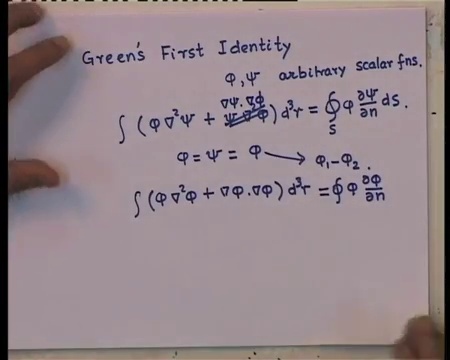 Green's First Identity
φ, ψ arbitrary scalar fns.
∇ψ.∇φ
∫ (φ∇²ψ + ψ∇²φ) d³r = ∮ φ ∂ψ/∂n ds.
S
φ = ψ = φ → φ₁-φ₂.
∫ (φ∇²φ + ∇φ.∇φ) d³r = ∮ φ ∂φ/∂n